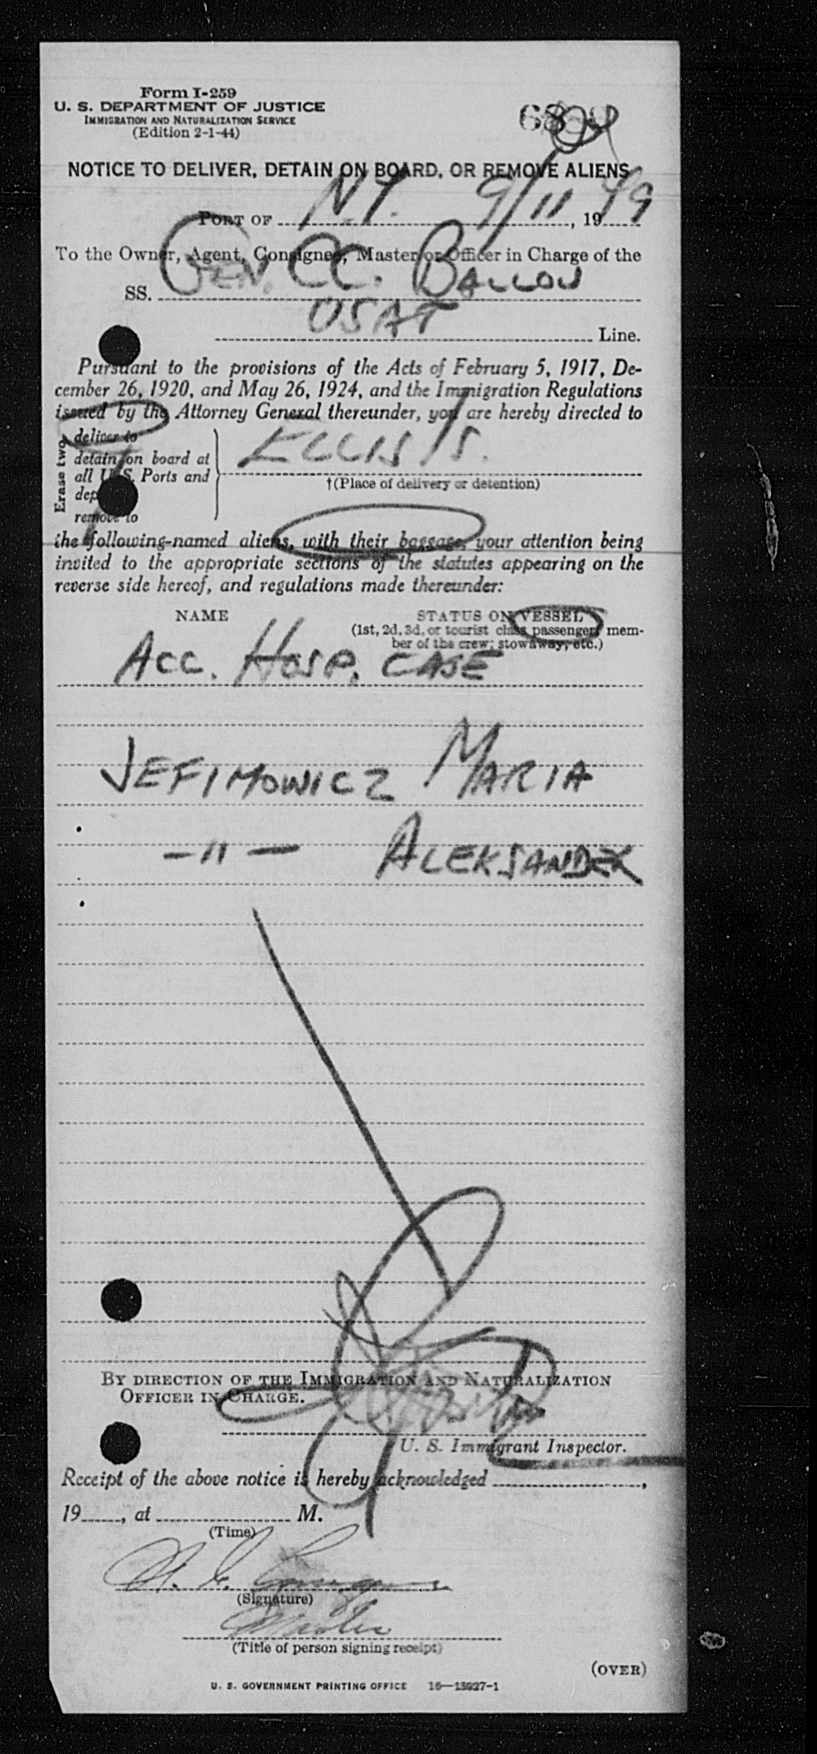 Form I-259
U. S. DEPARTMENT OF JUSTICE
IMMIGRATION AND NATURALIZATION SERVICE
(Edition 2-1-44)
NOTICE TO DELIVER, DETAIN ON BOARD, OR REMOVE ALIENS
PORT OF N.Y. 9/11, 1949
To the Owner, Agent, Consignee, Master or Officer in Charge of the
SS. GEN. CC. BALLOU
USAT Line.
Pursuant to the provisions of the Acts of February 5, 1917, De-
cember 26, 1920, and May 26, 1924, and the Immigration Regulations
issued by the Attorney General thereunder, you are hereby directed to
Erase two
deliver to
detain on board at
all U. S. Ports and
remove to
ELLIS I S.
†(Place of delivery or detention)
the following-named aliens, with their baggage, your attention being
invited to the appropriate sections of the statutes appearing on the
reverse side hereof, and regulations made thereunder:
NAME STATUS ON VESSEL
(1st, 2d, 3d, or tourist class passenger; mem-
ber of the crew; stowaway, etc.)
ACC. HOSP. CASE
JEFIMOWICZ MARIA
-"- ALEKSANDER
BY DIRECTION OF THE IMMIGRATION AND NATURALIZATION
OFFICER IN CHARGE.
U. S. Immigrant Inspector.
Receipt of the above notice is hereby acknowledged ,
19 , at M.
(Time)
(Signature)
Master
(Title of person signing receipt)
(OVER)
U. S. GOVERNMENT PRINTING OFFICE 16—13927-1